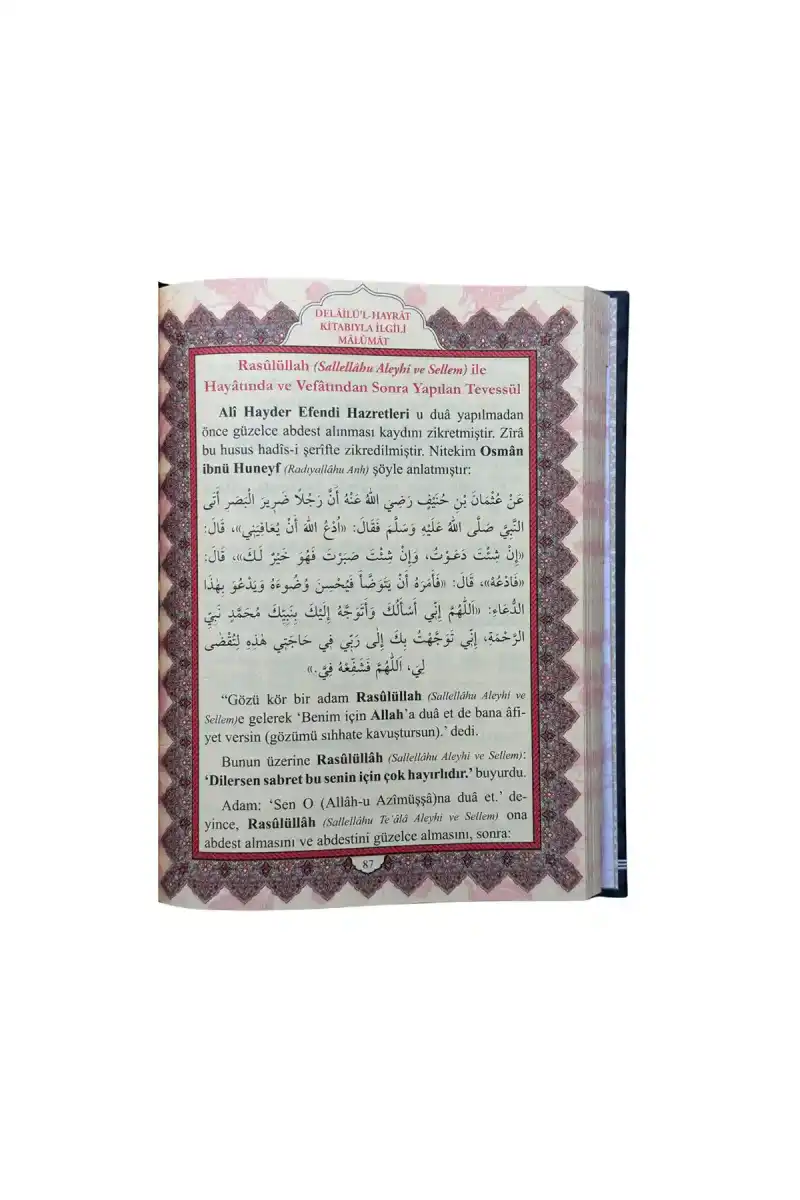 DELÂİLÜ'L-HAYRÂT
KİTABIYLA İLGİLİ
MÂLÛMÂT
Rasûlüllah (Sallellâhu Aleyhi ve Sellem) ile
Hayâtında ve Vefâtından Sonra Yapılan Tevessül
Alî Hayder Efendi Hazretleri u duâ yapılmadan
önce güzelce abdest alınması kaydını zikretmiştir. Zîrâ
bu husus hadîs-i şerîfte zikredilmiştir. Nitekim Osmân
ibnü Huneyf (Radıyallâhu Anh) şöyle anlatmıştır:
عَنْ عُثْمَانَ بْنِ حُنَيْفٍ رَضِيَ اللهُ عَنْهُ أَنَّ رَجُلًا ضَرِيرَ الْبَصَرِ أَتَى
النَّبِيَّ صَلَّى اللهُ عَلَيْهِ وَسَلَّمَ فَقَالَ: «اُدْعُ اللهَ أَنْ يُعَافِيَنِي»، قَالَ:
«إِنْ شِئْتَ دَعَوْتُ، وَإِنْ شِئْتَ صَبَرْتَ فَهُوَ خَيْرٌ لَكَ»، قَالَ:
«فَادْعُهْ»، قَالَ: «فَأَمَرَهُ أَنْ يَتَوَضَّأَ فَيُحْسِنَ وُضُوءَهُ وَيَدْعُوَ بِهٰذَا
الدُّعَاءِ: «اَللّٰهُمَّ إِنِّي أَسْأَلُكَ وَأَتَوَجَّهُ إِلَيْكَ بِنَبِيِّكَ مُحَمَّدٍ نَبِيِّ
الرَّحْمَةِ، إِنِّي تَوَجَّهْتُ بِكَ إِلَى رَبِّي فِي حَاجَتِي هٰذِهِ لِتُقْضٰى
لِيَ، اَللّٰهُمَّ فَشَفِّعْهُ فِيَّ.»
“Gözü kör bir adam Rasûlüllah (Sallellâhu Aleyhi ve
Sellem)e gelerek ‘Benim için Allah’a duâ et de bana âfi-
yet versin (gözümü sıhhate kavuştursun).’ dedi.
Bunun üzerine Rasûlüllâh (Sallellâhu Aleyhi ve Sellem):
‘Dilersen sabret bu senin için çok hayırlıdır.’ buyurdu.
Adam: ‘Sen O (Allâh-u Azîmüşşâ)na duâ et.’ de-
yince, Rasûlüllâh (Sallellâhu Te'âlâ Aleyhi ve Sellem) ona
abdest almasını ve abdestini güzelce almasını, sonra:
87